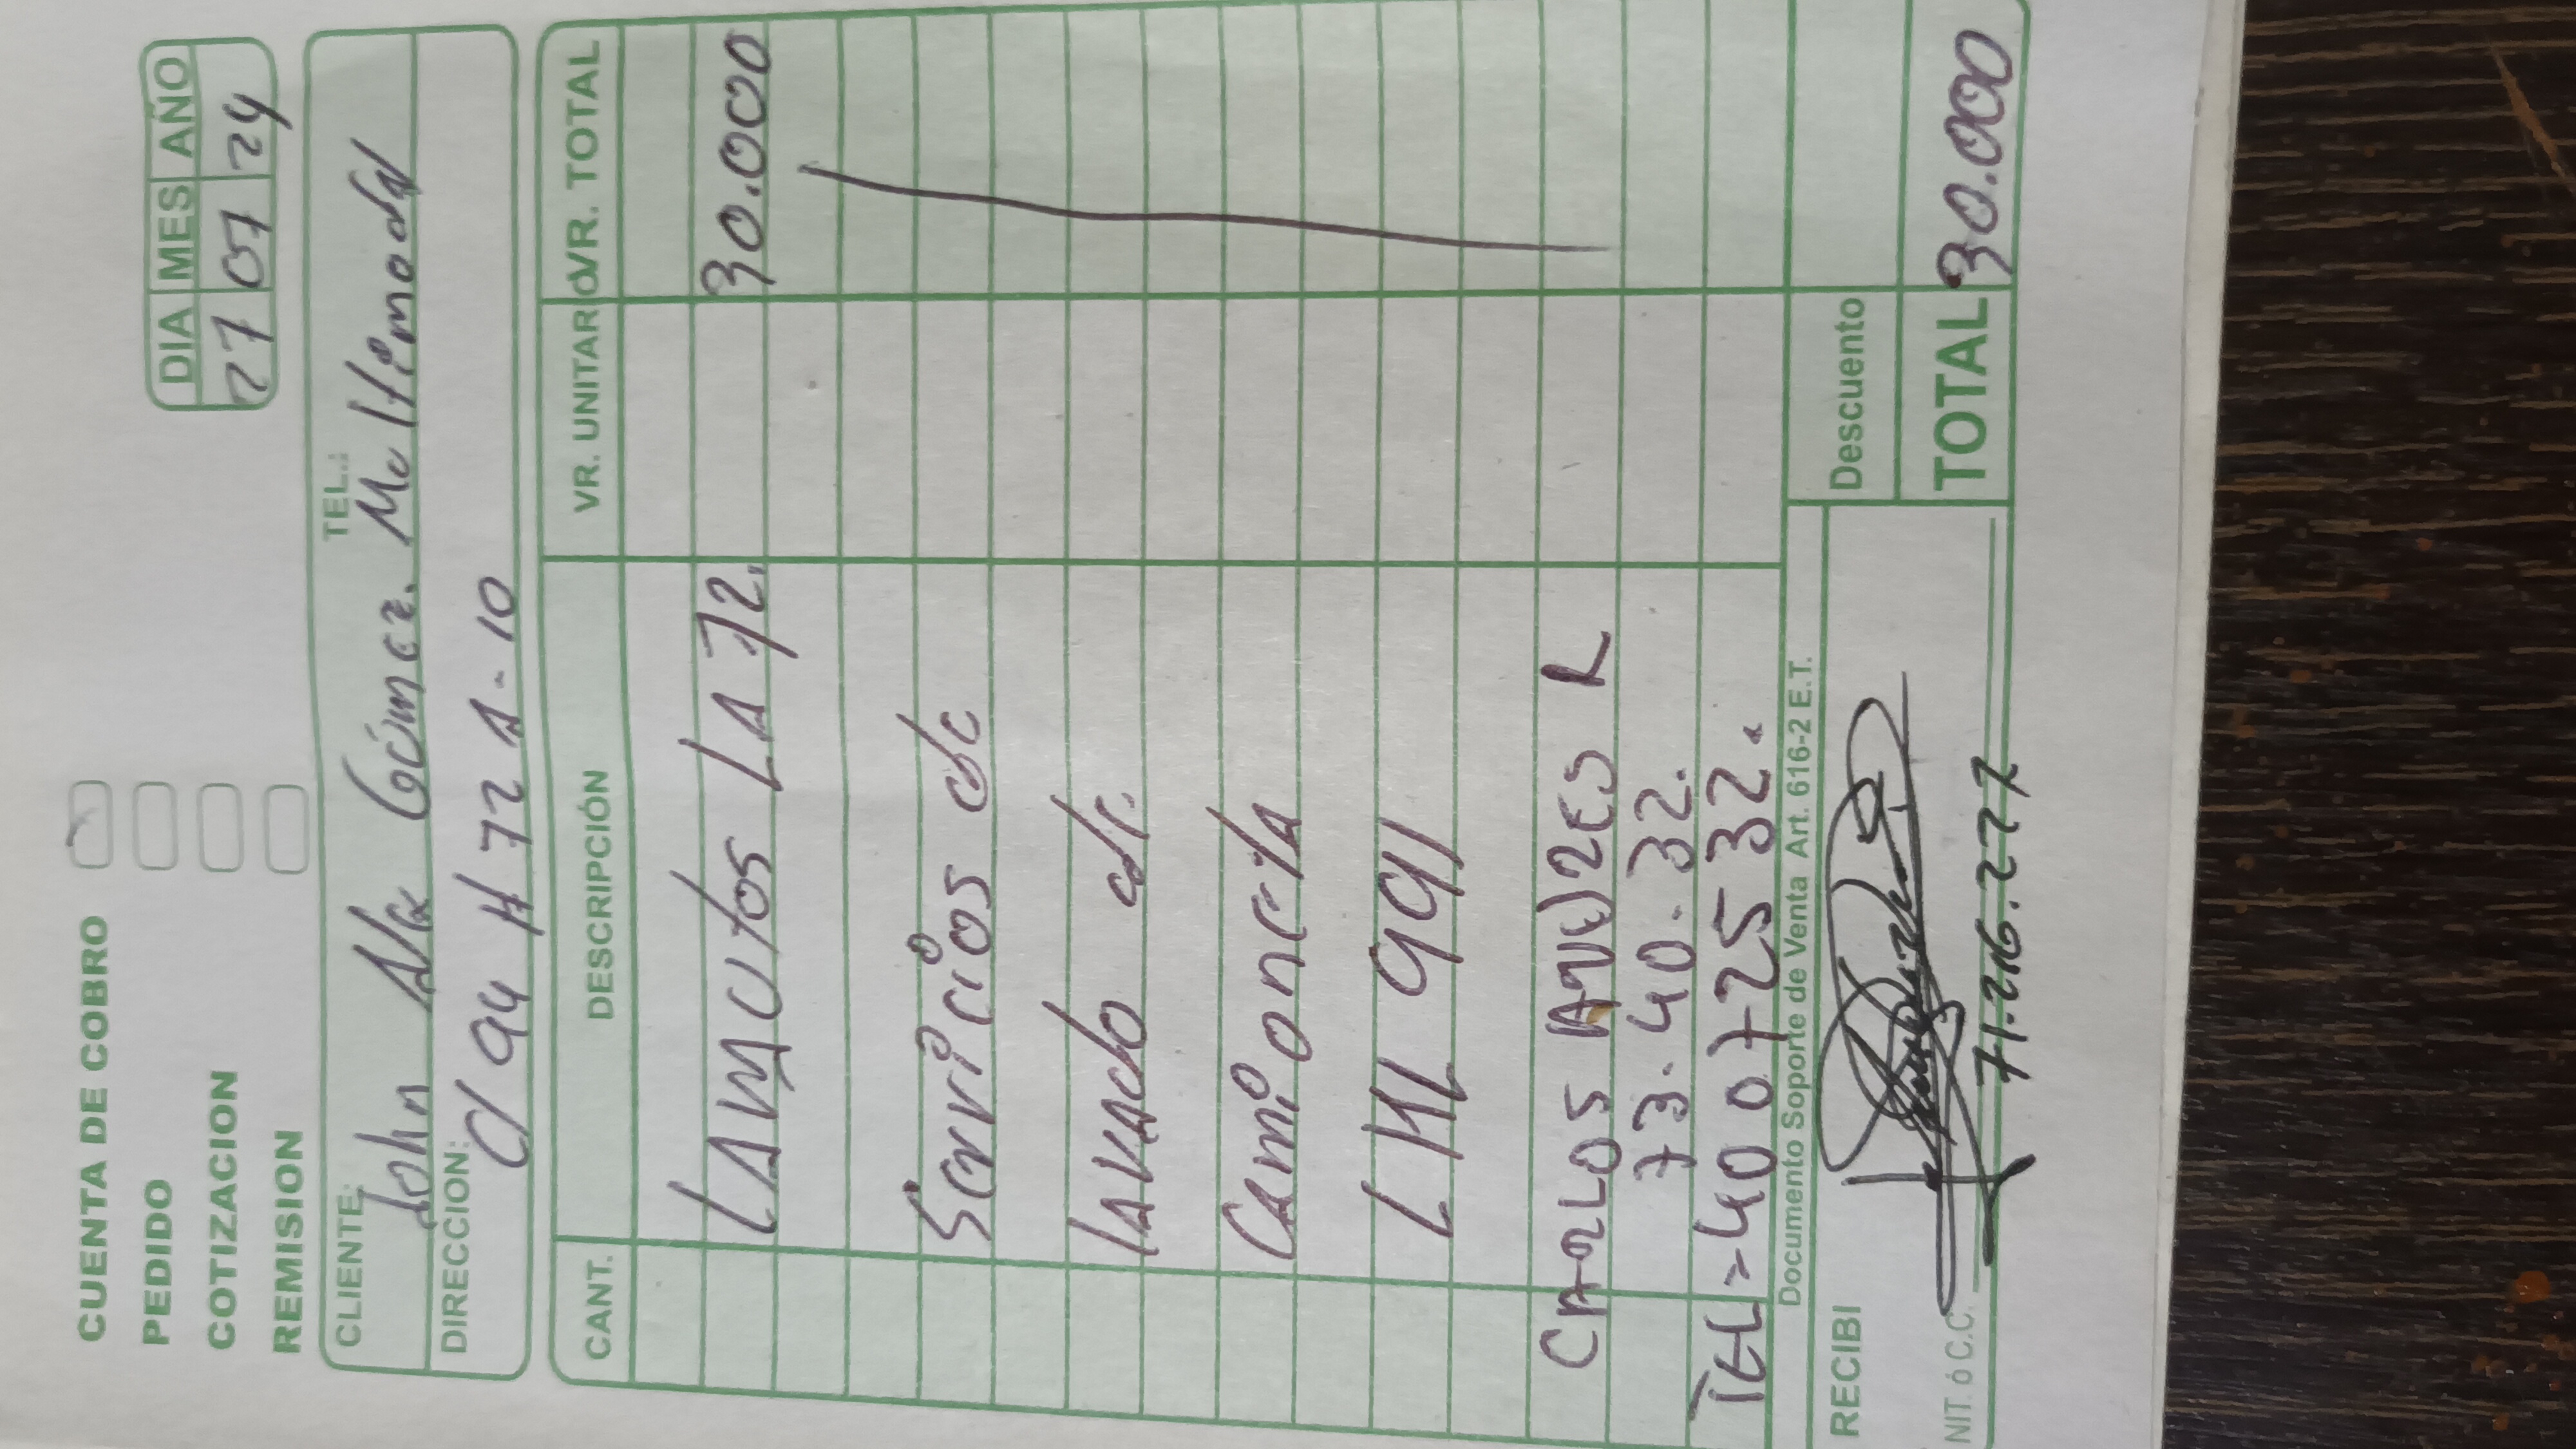 CUENTA DE COBRO
PEDIDO
COTIZACION
REMISION
DIA MES AÑO
27 07 24
CLIENTE: TEL.:
John Gómez. Multimodal
DIRECCION:
Cl 94 # 72 A-10
CANT. DESCRIPCIÓN VR. UNITARIO VR. TOTAL
LAVAUTOS LA 72. 30.000
Servicios de
LAVAdo de
Camioneta
LHL 991
CARLOS R
73.40.32.
TEL=400725 32.
Documento Soporte de Venta Art. 616-2 E.T.
RECIBI
Descuento
TOTAL 30.000
NIT. ó C.C. 71.216.227